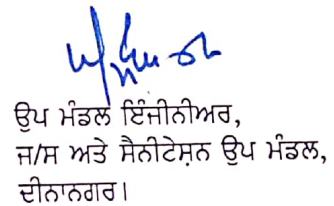 ਉਪ ਮੰਡਲ ਇੰਜੀਨੀਅਰ,
ਜ/ਸ ਅਤੇ ਸੈਨੀਟੇਸ਼ਨ ਉਪ ਮੰਡਲ,
ਦੀਨਾਨਗਰ।